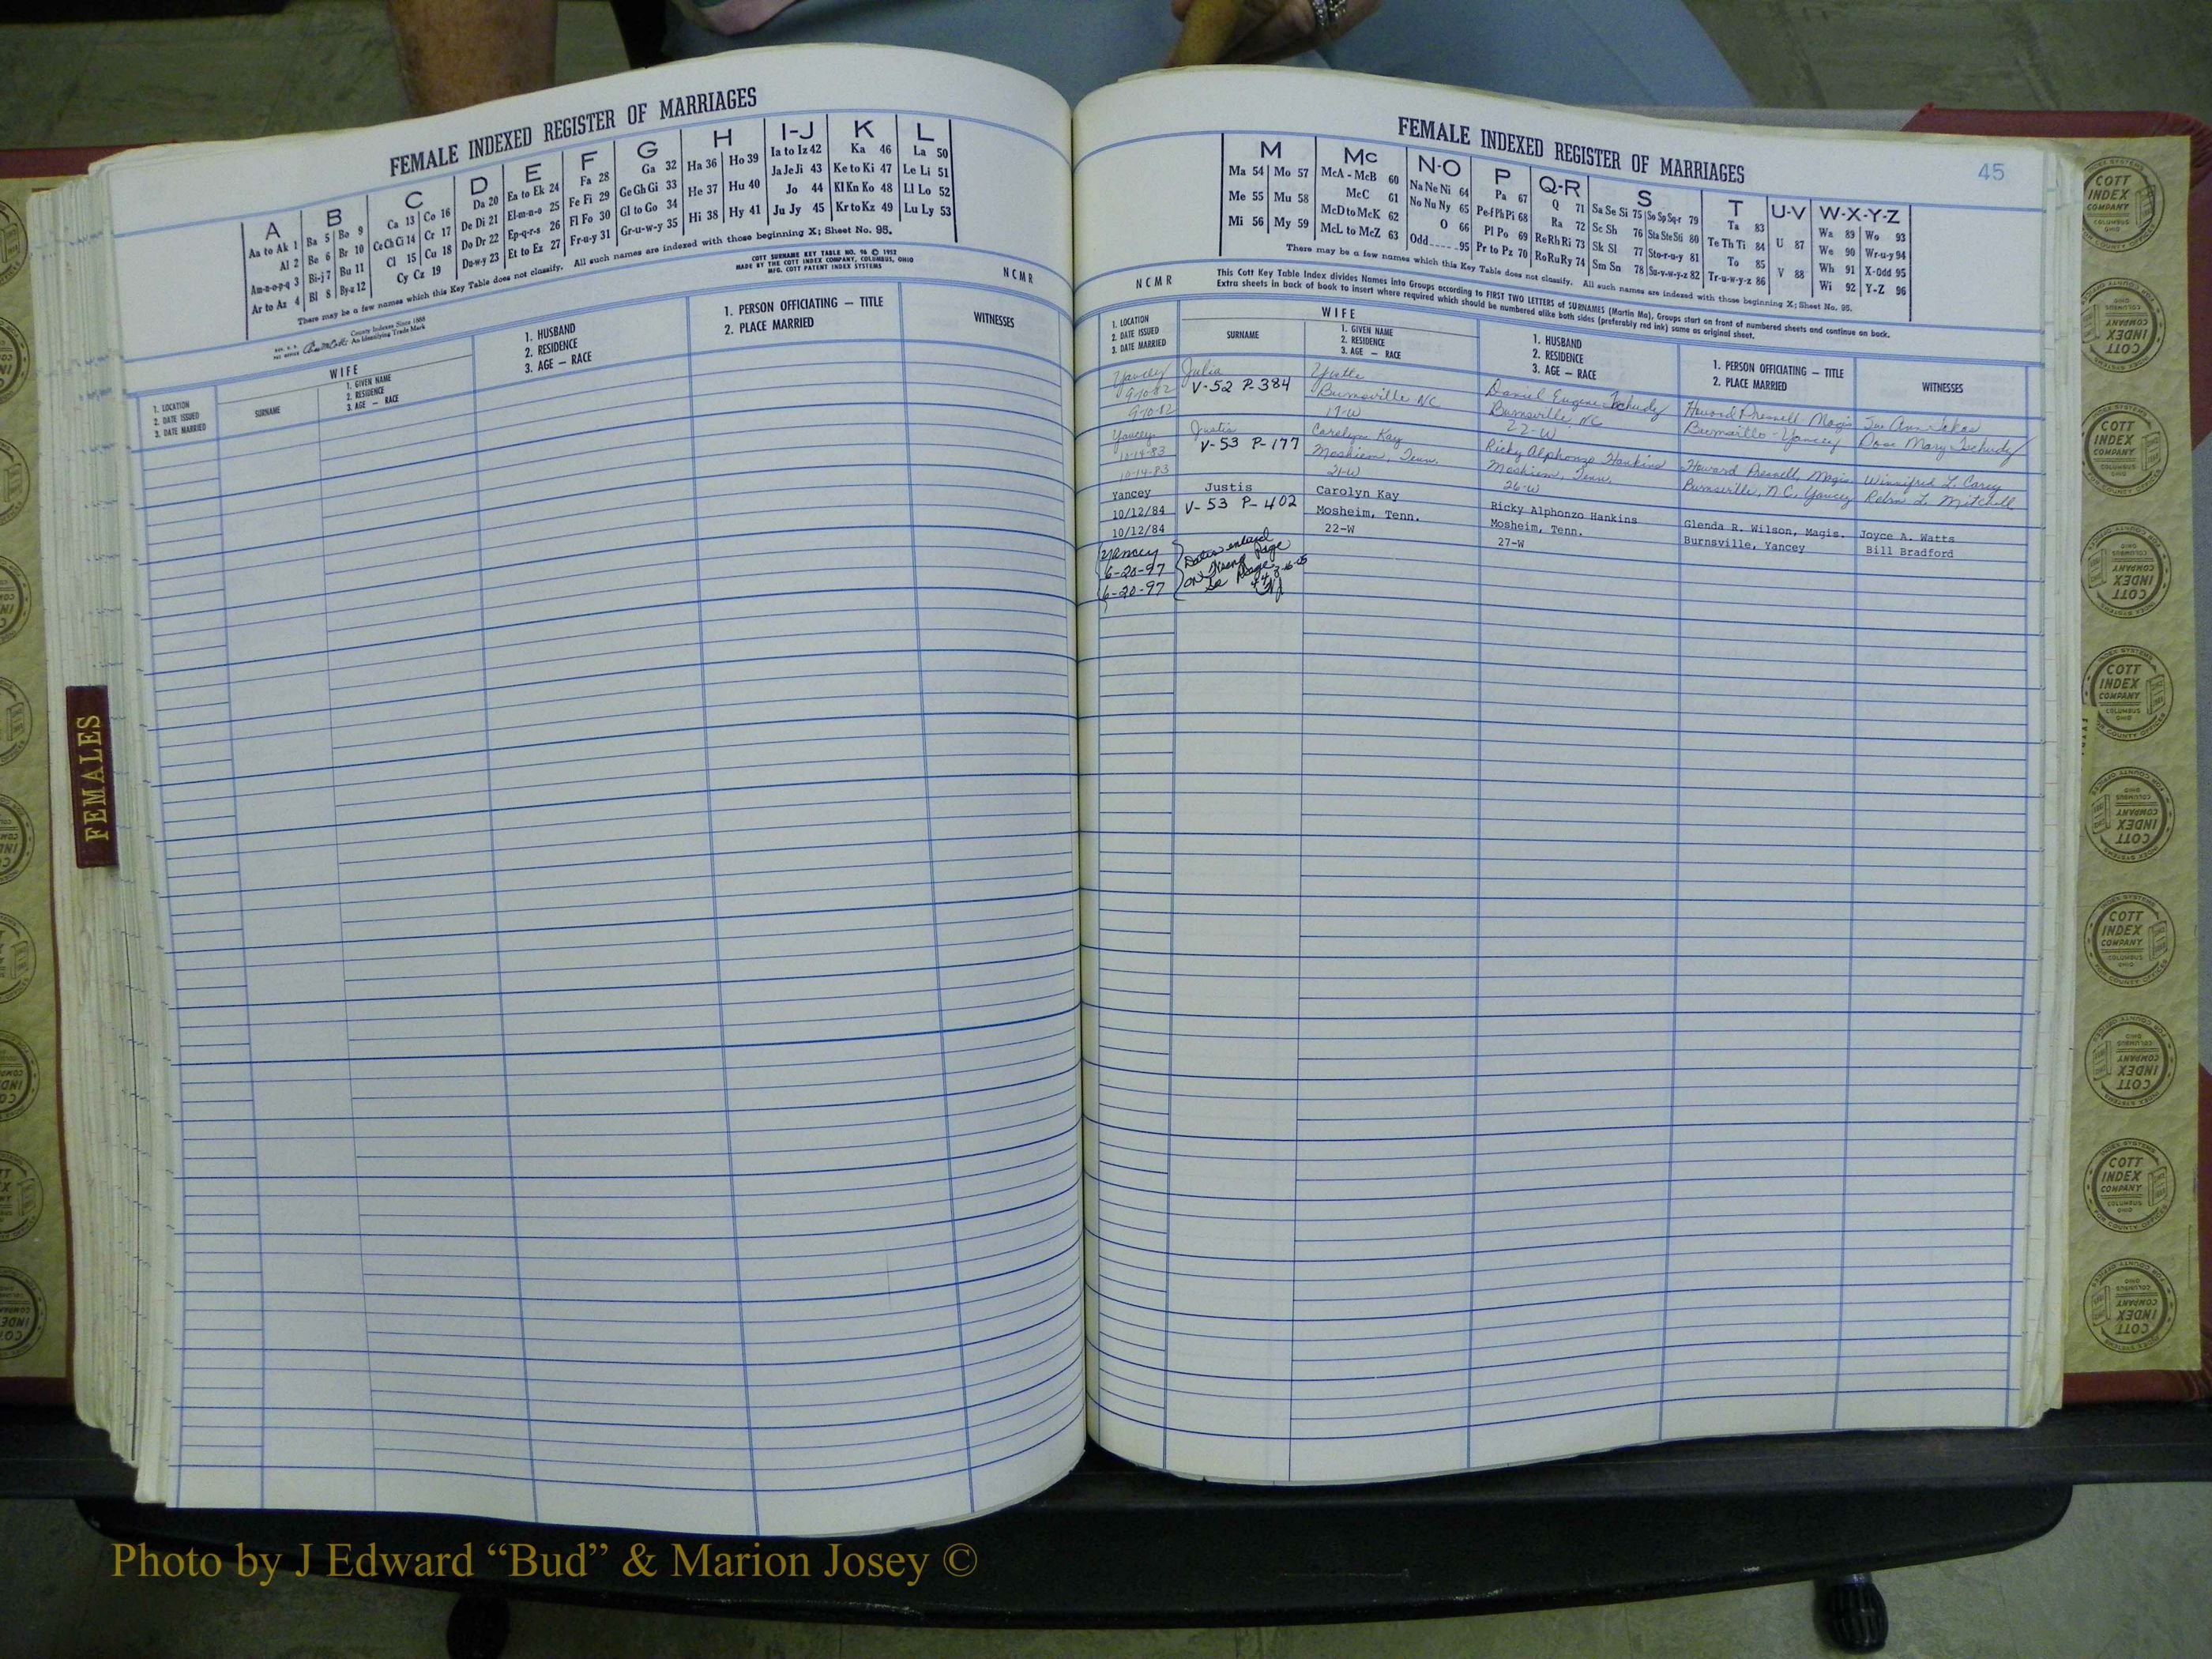 FEMALE INDEXED REGISTER OF MARRIAGES
A B C D E F G H I-J K L
Aa to Ak 1 Ba 5 Bo 9 Ca 13 Co 16 Da 20 Ea to Ek 24 Fa 28 Ga 32 Ha 36 Ho 39 Ia to Iz 42 Ka 46 La 50
Al 2 Be 6 Br 10 Ce Ch Ci 14 Cr 17 De Di 21 El-m-n-o 25 Fe Fi 29 Ge Gh Gi 33 He 37 Hu 40 Ja Je Ji 43 Ke to Ki 47 Le Li 51
Am-n-o-p-q 3 Bi-j 7 Bu 11 Cl 15 Cu 18 Do Dr 22 Ep-q-r-s 26 Fl Fo 30 Gl to Go 34 Hi 38 Hy 41 Jo 44 Kl Kn Ko 48 Ll Lo 52
Ar to Az 4 Bl 8 By-z 12 Cy Cz 19 Du-w-y 23 Et to Ez 27 Fr-u-y 31 Gr-u-w-y 35 Ju Jy 45 Kr to Kz 49 Lu Ly 53
There may be a few names which this Key Table does not classify. All such names are indexed with those beginning X; Sheet No. 95.
COTT SURNAME KEY TABLE NO. 96 © 1952
MADE BY THE COTT INDEX COMPANY, COLUMBUS, OHIO
MFG. COTT PATENT INDEX SYSTEMS
County Indexes Since 1888
An Identifying Trade Mark
NCMR
WIFE
1. LOCATION
2. DATE ISSUED
3. DATE MARRIED
SURNAME
1. GIVEN NAME
2. RESIDENCE
3. AGE — RACE
1. HUSBAND
2. RESIDENCE
3. AGE — RACE
1. PERSON OFFICIATING — TITLE
2. PLACE MARRIED
WITNESSES
FEMALES
FEMALE INDEXED REGISTER OF MARRIAGES
45
M Mc N-O P Q-R S T U-V W-X-Y-Z
Ma 54 Mo 57 McA - McB 60 Na Ne Ni 64 Pa 67 Q 71 Sa Se Si 75 So Sp Sq-r 79 Ta 83 U 87 Wa 89 Wo 93
Me 55 Mu 58 McC 61 No Nu Ny 65 Pe-f Ph Pi 68 Ra 72 Sc Sh 76 Sta Ste Sti 80 Te Th Ti 84 V 88 We 90 Wr-u-y 94
Mi 56 My 59 McD to McK 62 O 66 Pl Po 69 Re Rh Ri 73 Sk Sl 77 Sto-r-u-y 81 To 85 Wh 91 X-Odd 95
McL to McZ 63 Odd 95 Pr to Pz 70 Ro Ru Ry 74 Sm Sn 78 Su-v-w-y-z 82 Tr-u-w-y-z 86 Wi 92 Y-Z 96
There may be a few names which this Key Table does not classify. All such names are indexed with those beginning X; Sheet No. 95.
This Cott Key Table Index divides Names into Groups according to FIRST TWO LETTERS of SURNAMES (Martin Ma), Groups start on front of numbered sheets and continue on back.
Extra sheets in back of book to insert where required which should be numbered alike both sides (preferably red ink) same as original sheet.
NCMR
WIFE
1. LOCATION
2. DATE ISSUED
3. DATE MARRIED
SURNAME
1. GIVEN NAME
2. RESIDENCE
3. AGE — RACE
1. HUSBAND
2. RESIDENCE
3. AGE — RACE
1. PERSON OFFICIATING — TITLE
2. PLACE MARRIED
WITNESSES
Yancey Julia Daniel Eugene Tschudy Howard Pressell Magis
9-10-82 V-52 P-384 Burnsville NC Burnsville, NC Yancey Rose Mary Tschudy
9-10-82 22-W
Yancey Justis Carolyn Kay Ricky Alphonzo Hankins Howard Pressell, Magis. Winnifred L. Carey
10-14-83 V-53 P-177 Moshiem, Tenn. Moshiem, Tenn. Burnsville, N.C. Yancey L. Mitchell
10-14-83 21-W 26-W
Yancey Justis Carolyn Kay Ricky Alphonzo Hankins Glenda R. Wilson, Magis. Joyce A. Watts
10/12/84 V-53 P-402 Mosheim, Tenn. Mosheim, Tenn. Burnsville, Yancey Bill Bradford
10/12/84 22-W 27-W
Yancey Dates entered
6-20-97 on Wrong Page
6-20-97 See Page 44
Photo by J Edward “Bud” & Marion Josey ©